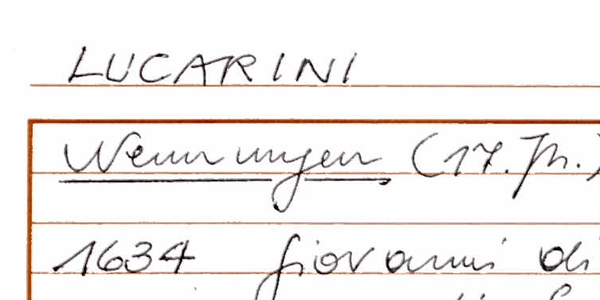 LUCARINI
Nennungen (17. Jh.)
1634 Giovanni di